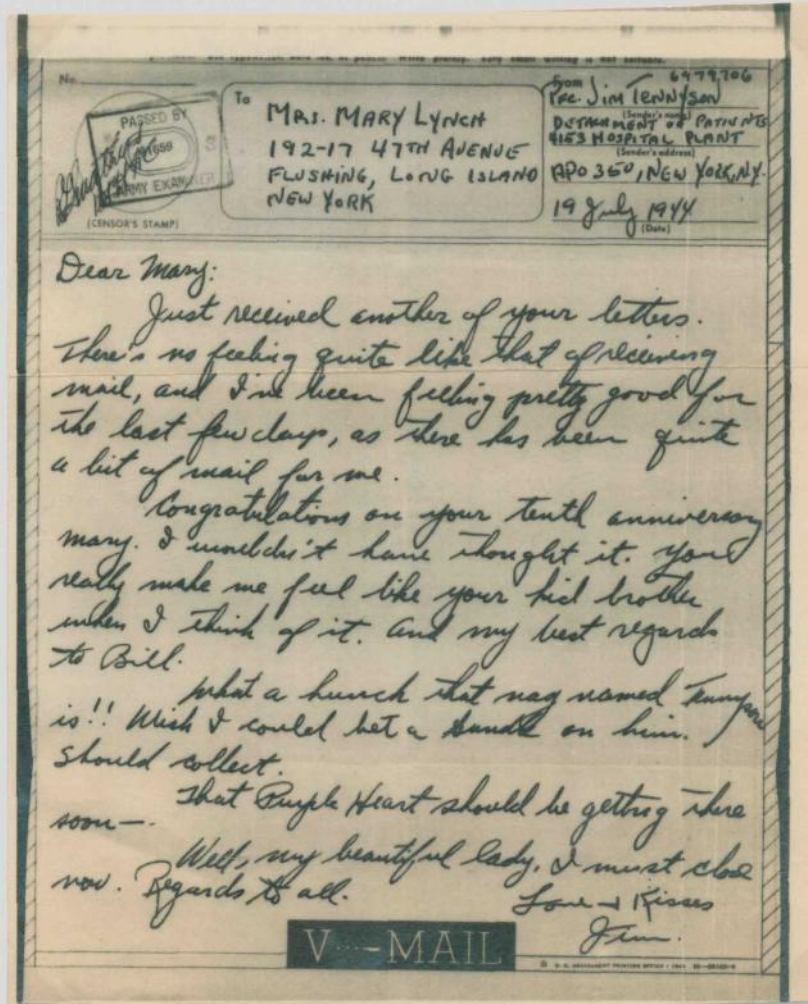 No.
PASSED BY
ARMY EXAMINER
(CENSOR'S STAMP)
To
MRS. MARY LYNCH
192-17 47TH AVENUE
FLUSHING, LONG ISLAND
NEW YORK
From 6979706
Pfc. JIM TENNYSON
(Sender's name)
DETACHMENT OF PATIENTS
4153 HOSPITAL PLANT
(Sender's address)
APO 350, NEW YORK, N.Y.
19 July 1944
(Date)
Dear Mary:
Just received another of your letters.
There's no feeling quite like that of receiving
mail, and I've been feeling pretty good for
the last few days, as there has been quite
a bit of mail for me.
Congratulations on your tenth anniversary
Mary. I wouldn't have thought it. You
really make me feel like your kid brother
when I think of it. And my best regards
to Bill.
What a hunch that nag named Tennyson
is!! Wish I could bet a bundle on him. I
should collect.
That Purple Heart should be getting there
soon—.
Well, my beautiful lady, I must close
now. Regards to all.
Love + Kisses
Jim.
V···—MAIL